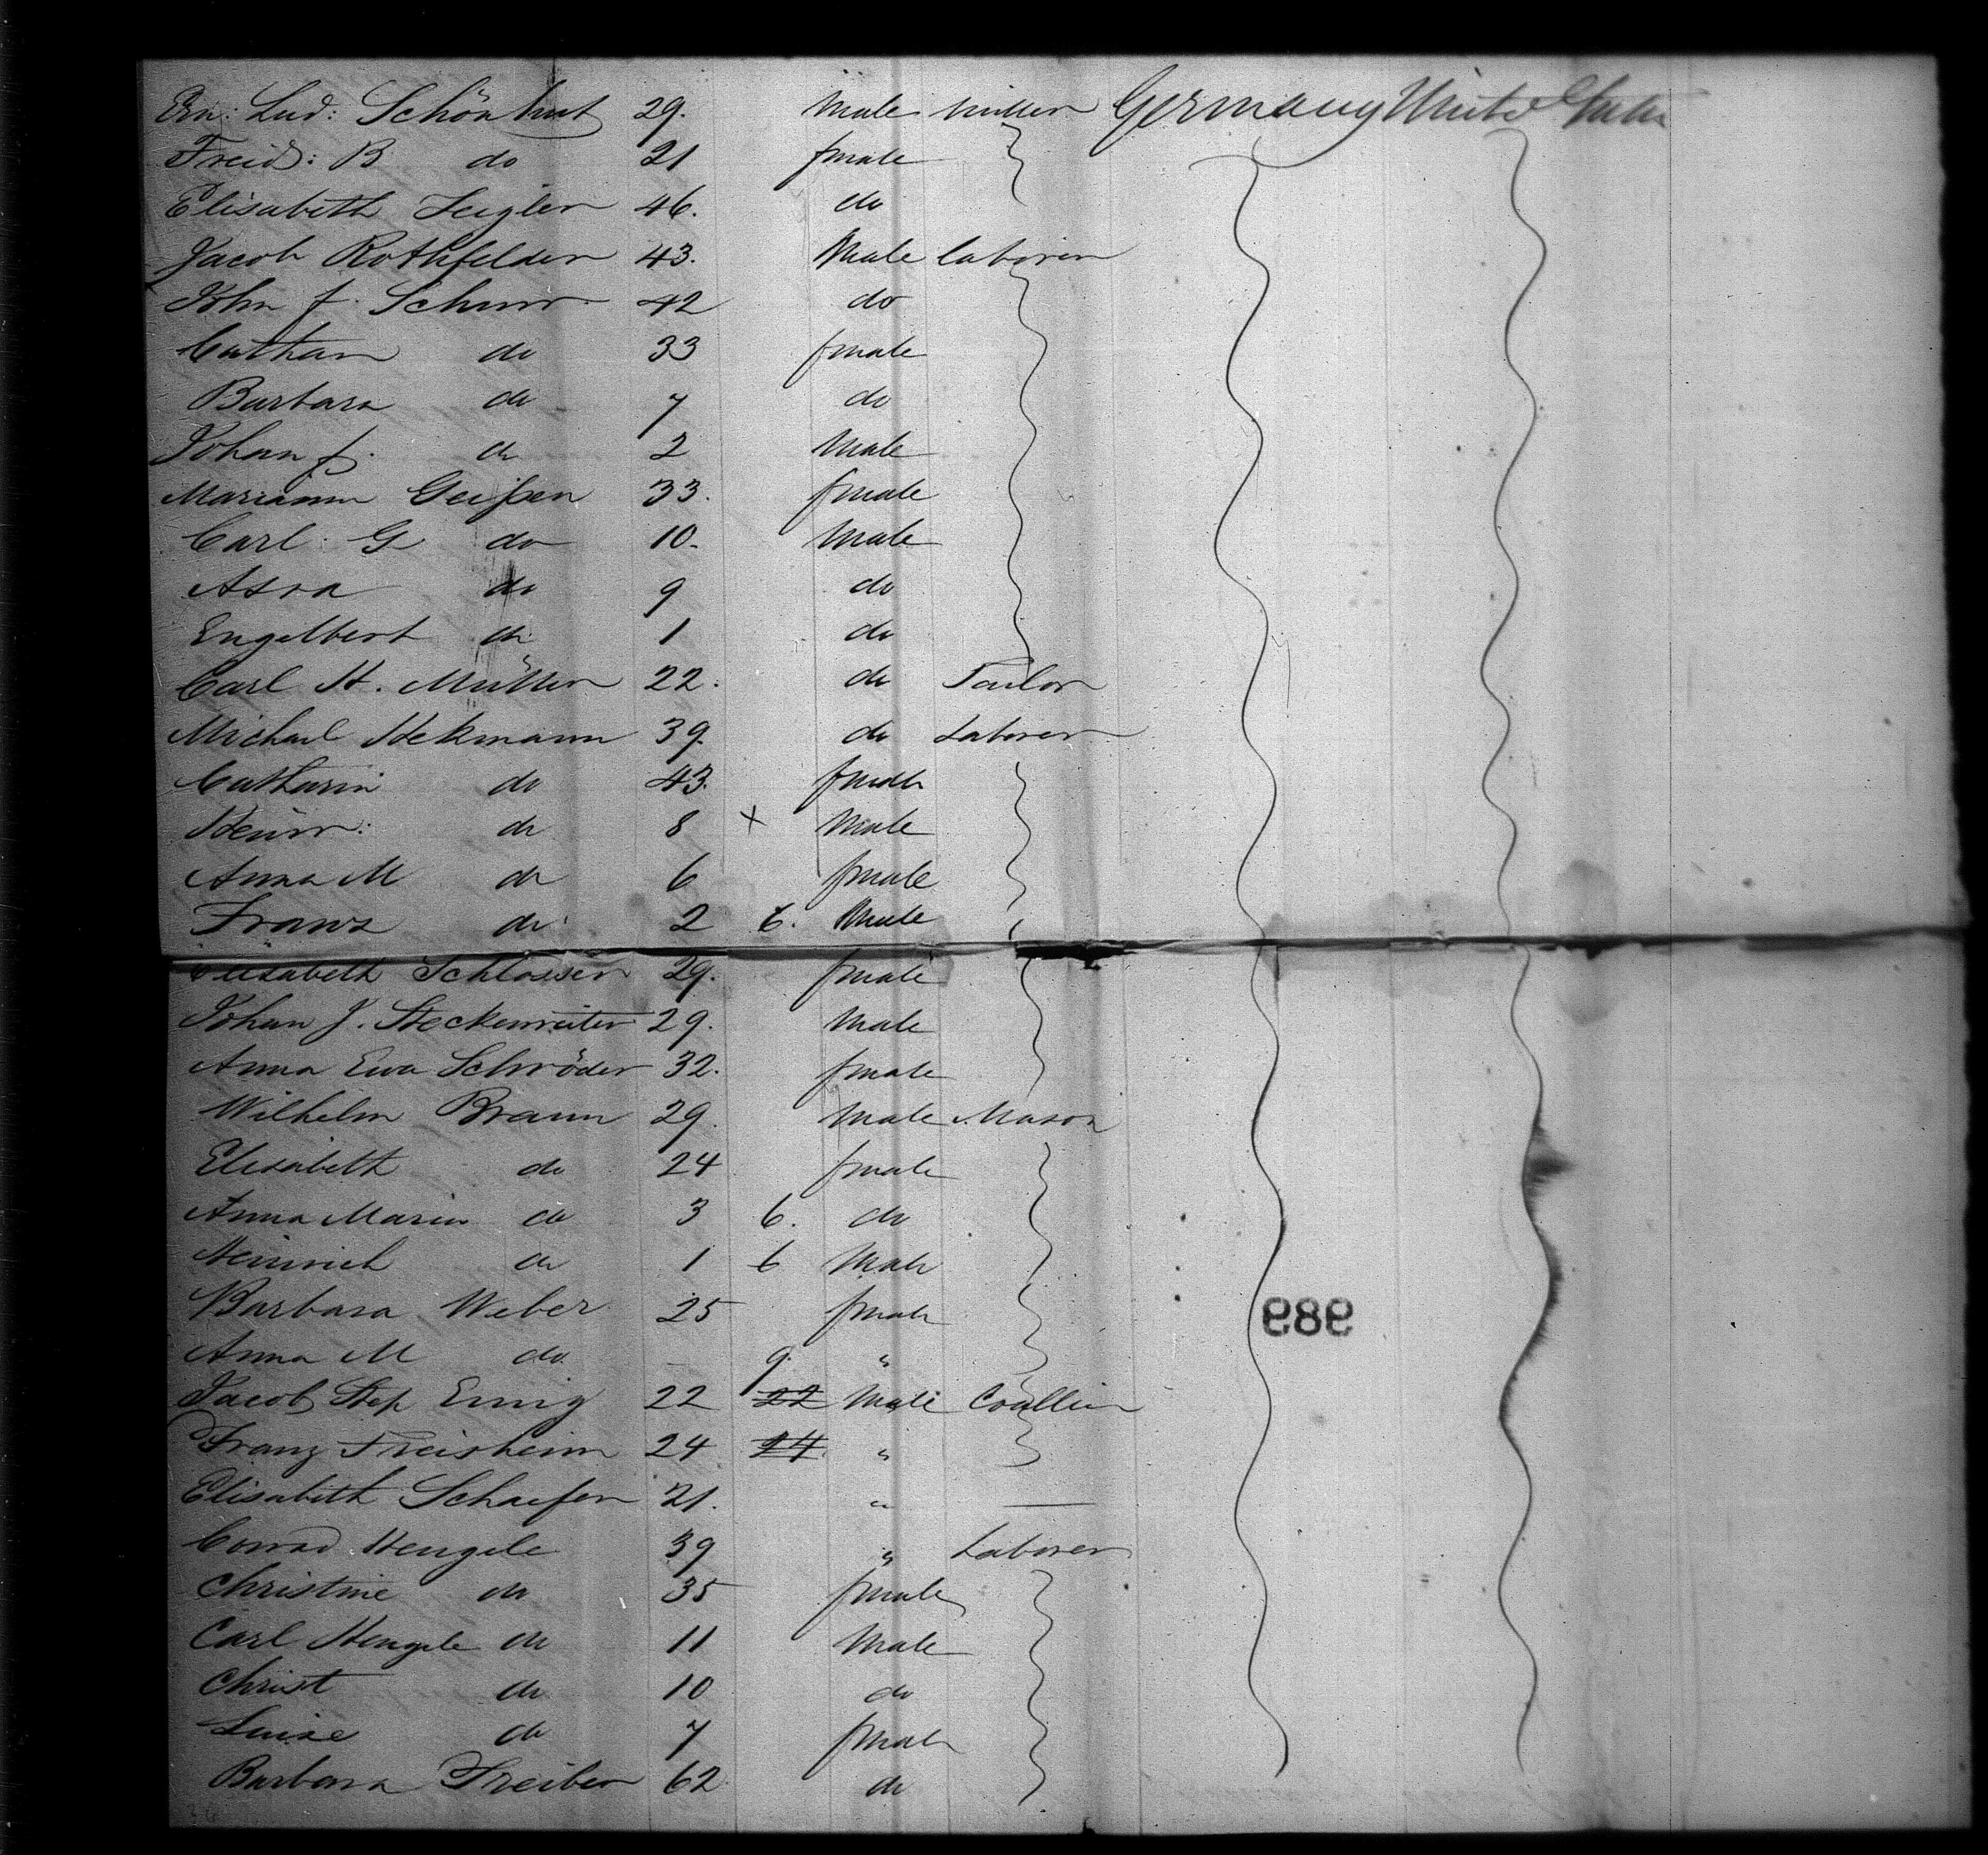 Ern: Lud: Schönhut 29. Male Miller Germany United States
Freid: B do 21 female
Elisabeth Seigler 46. do
Jacob Rothfelder 43. Male laborer
John f. Schurr 42 do
Cathar do 33 female
Barbara do 7 do
Johan f. do 2 Male
Mariann Geißen 33. female
Carl G do 10. Male
do 9 do
Engelbert do 1 do
Carl H. Müller 22. do Tailor
Michael Hekmann 39. do Laborer
Catharin do 43. female
Heinr: do 8 x Male
Anna M do 6 female
Franz do 2 6. Male
Elisabeth Schlosser 29. female
Johan J. Steckenreiter 29. Male
Anna Eva Schröder 32. female
Wilhelm Braun 29. Male Mason
Elisabeth do 24 female
Anna Maria do 3 6. do
Heinrich do 1 6 Male
Barbara Weber 25 female
989
Anna M do. 9. "
Jacob Step Emig 22 22 Male
Franz Freisheim 24 24 "
Elisabeth Schaefer 21. " —
Conrad Hengele 39 " Laborer
Christine do 35 female
Carl Hengele do 11 Male
Christ do 10 do
Luise do 7 female
Barbara Treiber 62 do